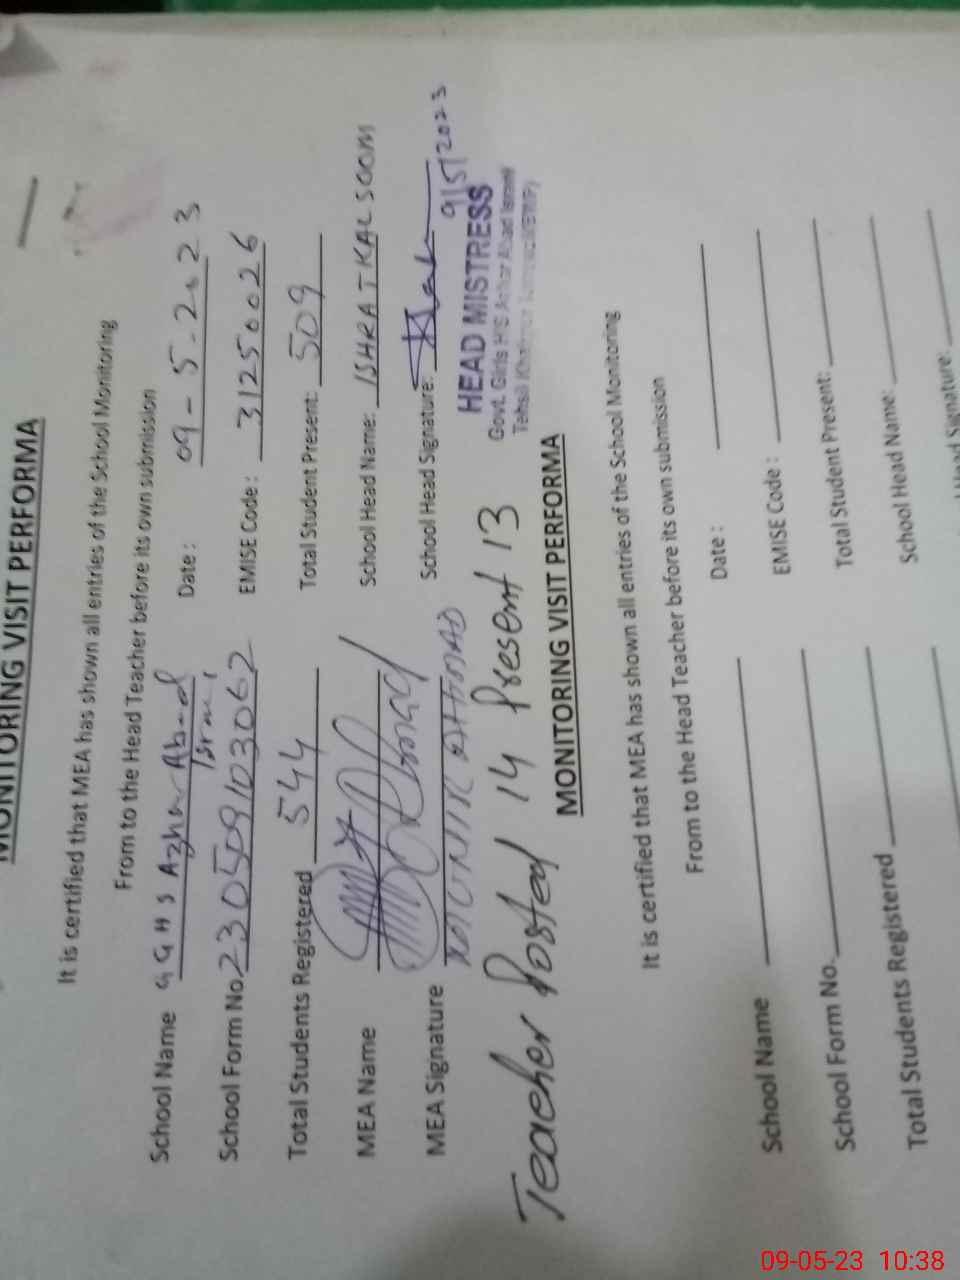 MONITORING VISIT PERFORMA
It is certified that MEA has shown all entries of the School Monitoring
From to the Head Teacher before its own submission
School Name GGHS Azhar Abad Ismail Date: 09-5-2023
School Form No. 230509103062 EMISE Code: 31250026
Total Students Registered 544 Total Student Present: 509
MEA Name School Head Name: ISHRAT KALSOOM
MEA Signature School Head Signature: 9/5/2023
HEAD MISTRESS
Govt. Girls H/S Azhar Abad Ismail
Tehsil
Teacher Posted 14 Present 13
MONITORING VISIT PERFORMA
It is certified that MEA has shown all entries of the School Monitoring
From to the Head Teacher before its own submission
School Name Date:
School Form No. EMISE Code:
Total Students Registered Total Student Present:
School Head Name:
Head Signature:
09-05-23 10:38